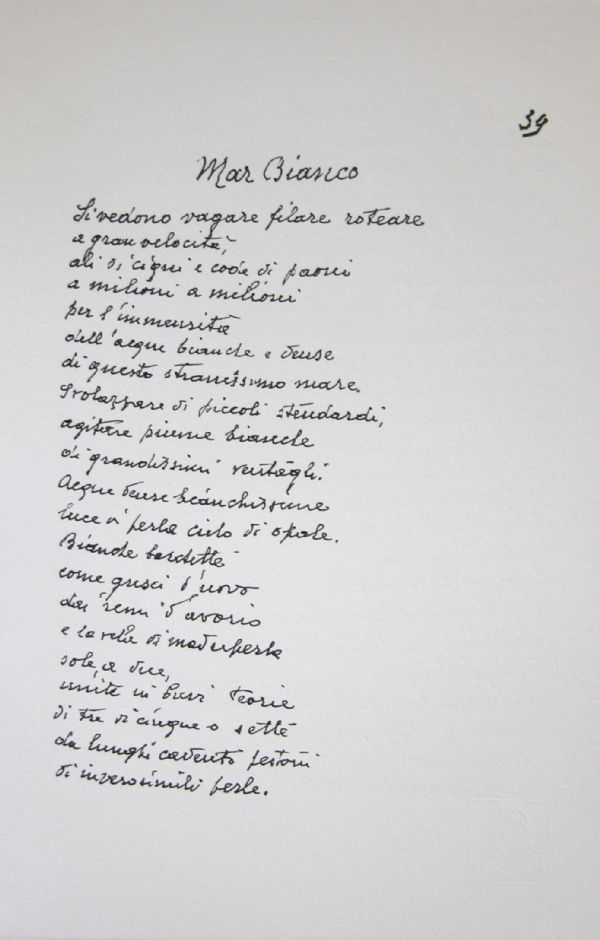 39
Mar Bianco
Si vedono vagare filare roteare
a gran velocità,
ali di cigni e code di paoni
a milioni a milioni
per l'immensità
dell'acque bianche e dense
di questo stranissimo mare.
Svolazzare di piccoli stendardi,
agitare piume bianche
di grandissimi ventagli.
Acque dense bianchissime
luce di perla cielo di opale.
Bianche barchette
come gusci d'uovo
dai remi d'avorio
e la vela di madreperla
sole, a due,
unite in brevi teorie
di tre di cinque o sette
da lunghi cadenti festoni
di inverosimili perle.